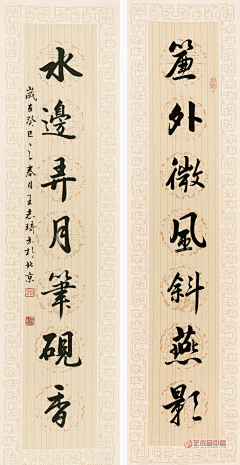 簾外微風斜燕影
水邊弄月筆硯香
歲在癸巳之春月王志琦書於北京
艺术品中国